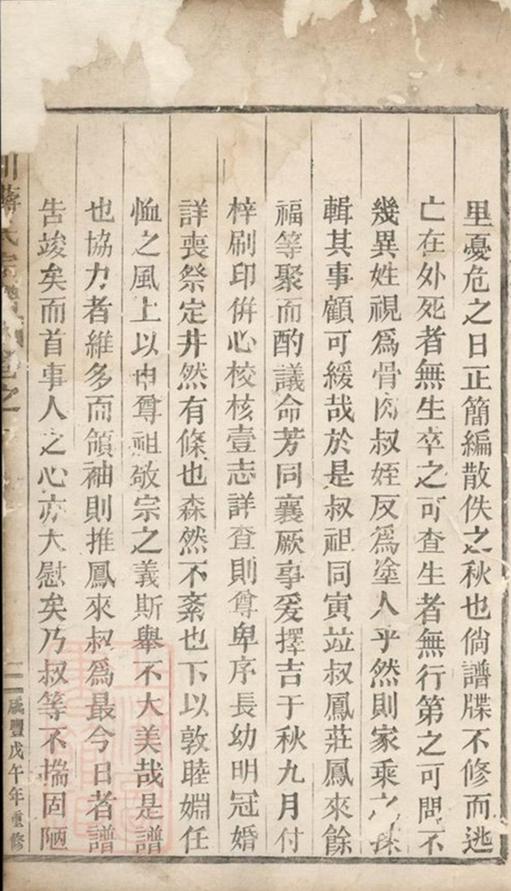 里憂危之日正簡編散佚之秋也倘譜牒不修而逃
亡在外死者無生卒之可查生者無行第之可問不
幾異姓視爲骨肉叔姪反爲塗人乎然則家乘之
輯其事顧可緩哉於是叔祖同寅竝叔鳳莊鳳來餘
福等聚而酌議命芳同襄厥事爰擇吉于秋九月付
梓刷印倂心校核壹志詳查則尊卑序長幼明冠婚
詳喪祭定井然有條也森然不紊也下以敦睦婣任
恤之風上以申尊祖敬宗之義斯舉不大美哉是譜
也協力者維多而領袖則推鳳來叔爲最今日者譜
吿竣矣而首事人之心亦大慰矣乃叔等不揣固陋
川蔣氏宗
卷之
二
咸豐戊午年重修